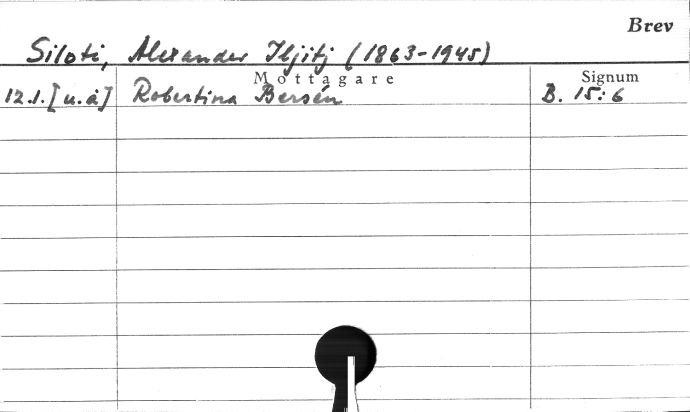 Brev
Siloti, Alexander Iljitj (1863-1945)
Mottagare Signum
12.1. [u.å] Robertina Bersén B. 15:6